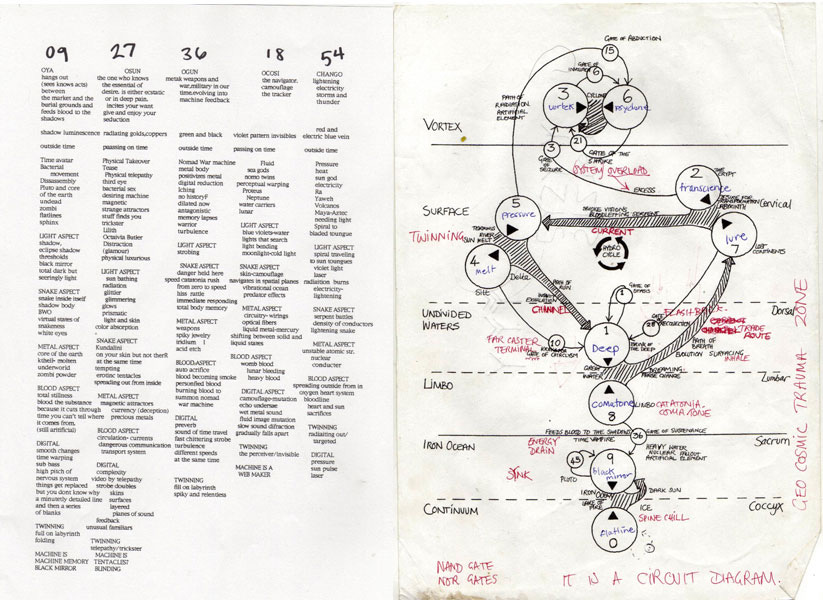 09
OYA
hangs out
(sees knows acts)
between
the market and the
burial grounds and
feeds blood to the
shadows
shadow luminescence
outside time
Time avatar
Bacterial
movement
Dissassembly
Pluto and core
of the earth
undead
zombi
flatlines
sphinx
LIGHT ASPECT
shadow,
eclipse (shadow)
thresholds
black mirror
total dark but
seeringly light
SNAKE ASPECT
snake inside itself
shadow body
BWO
virtual states of
snakeness
white eyes
METAL ASPECT
core of the earth
kthell- molten
underworld
zombi powder
BLOOD ASPECT
total stillness
blood the substance
because it cuts through
time you can't tell where
it comes from,
(still artificial)
DIGITAL
smooth changes
time warping
sub bass
high pitch of
nervous system
things get replaced
but you dont know why
a minutely detailed line
and then a series
of blanks
TWINNING
full on labyrinth
folding
MACHINE IS
MACHINE MEMORY
BLACK MIRROR
27
OSUN
the one who knows
the essential of
desire. is either ecstatic
or in deep pain,
incites your want
give and enjoy your
seduction
radiating golds,coppers
paassing on time
Physical Takeover
Tease
Physical telepathy
third eye
bacterial sex
desiring machine
magnetic
strange attractors
stuff finds you
trickster
Lilith
Octavia Butler
Distraction
(glamour)
physical luxurious
LIGHT ASPECT
sun bathing
radiation
glittier
glimmering
glows
prismatic
light and skin
color absorption
SNAKE ASPECT
Kundalini
on your skin but not there
at the same time
tempting
erotic tentacles
spreading out from inside
METAL ASPECT
magnetic attractors
currency (deception)
precious metals
BLOOD ASPECT
circulation- currents
dangerous communication
transport system
DIGITAL
complexity
video by telepathy
strobe doubles
skins
surfaces
layered
planes of sound
feedback
unusual familiars
TWINNING
telepathy/trickster
MACHINE IS
TENTACLES?
BLINDING
36
OGUN
metals weapons and
war,military in our
time,evolving into
machine feedback
green and black
outside time
Nomad War machine
metal body
positivizes metal
digital reduction
Iching
no history?
dilated now
antagonistic
memory lapses
warrior
turbulence
LIGHT ASPECT
strobing
SNAKE ASPECT
danger held here
speed catatonia rush
from zero to speed
hiss rattle
immediate responding
total body memory
METAL ASPECT
weapons
spiky jewelry
iridium I
acid etch
BLOODASPECT
auto acrifice
blood becoming smoke
personified blood
burning blood to
summon nomad
war machine
DIGITAL
preverb
sound of time travel
fast chittering strobe
turbulence
different speeds
at the same time
TWINNING
fill on labyrinth
spiky and relentless
18
OCOSI
the navigator.
camouflage
the tracker
violet pattern invisibles
passing on time
Fluid
sea gods
nomo twins
perceptual warping
Proteus
Neptune
water carriers
lunar
LIGHT ASPECT
blue violets-water
lights that search
light bending
moonlight-cold light
SNAKE ASPECT
skin-camouflage
navigates in spatial planes
vibrational ocean
predator effects
METAL ASPECT
circuitry-wirings
optical fibers
liquid metal-mercury
shifting between solid and
liquid states
BLOOD ASPECT
womb blood
lunar bleeding
heavy blood
DIGITAL ASPECT
camouflage-mutation
echo undersae
wet metal sound
slow sound diffraction
gradually falls apart
TWINNING
the perceiver/invisible
MACHINE IS A
WEB MAKER
54
CHANGO
lightening
electricity
storms and
thunder
red and
electric blue vein
outside time
Pressure
heat
sun god
electricity
Ra
Yaweh
Volcanos
Maya-Aztec
needling light
Spiral to
bladed toungue
LIGHT ASPECT
spiral traveling
to sun toungues
violet light
laser
radiation burns
electricity-
lightening
SNAKE ASPECT
serpent battles
density of conductors
lightening snake
METAL ASPECT
unstable atomic str.
nuclear
conducter
BLOOD ASPECT
spreading outside from in
oxygen heart system
bloodline
heart and sun
sacrifices
TWINNING
radiaiting out/
targeted
DIGITAL
pressure
sun pulse
laser
GATE OF ABDUCTION
15
GATE OF
6
PATH OF
RADIATION
ARTIFICIAL
ELEMENT
3
vortex
CYCLONE
6
psyclone
VORTEX
3
GATE
OF
SEIZURE
21
GATE OF THE
STRIKE
SYSTEM OVERLOAD
EXCESS
2
transcience
THE
CRYPT
LABYRINTH
Cervical
5
pressure
SURFACE
TWINNING
SMOKE VISIONS
BLOODLETTING SERPENT
CURRENT
HYDRO
CYCLE
lure
7
LOST
CONTINENTS
Dorsal
SUN MELT
4
melt
Silt
Delta
PATH
OF
RUIN
CHANNEL
1
GATE OF
UNDIVIDED
WATERS
FLASHBACK
TRADE
ROUTE
28
FAR CASTER
TERMINAL
10
GATE OF CATACLYSM
1
Deep
PATH OF
BREATH
EVOLUTION SURFACING
INHALE
GREAT
WATER
DREAMING
PHASE CHANGE
Lumbar
LIMBO
comatone
8
LIMBO
CATATONIA
COMA ZONE
FEEDS BLOOD TO THE SHADOWS
TIME VAMPIRE
36
GATE OF SUBSTENANCE
Sacrum
IRON OCEAN
ENERGY
DRAIN
HEAVY WATER
NUCLEAR FALLOUT
ARTIFICIAL ELEMENT
SINK
45
PLUTO
9
black
mirror
IRON
OCEAN
DARK SUN
LAKE OF
FIRE
ICE
SPINE CHILL
CONTINUUM
Coccyx
flatline
0
NAND GATE
NOR GATES
IT IS A CIRCUIT DIAGRAM.
GEO COSMIC TRAUMA ZONE